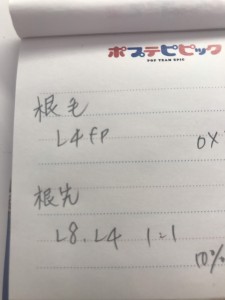 ポプテピピック
POP TEAM EPIC
根毛
L4fp
0x
根先
L8.L4 1:1
10%